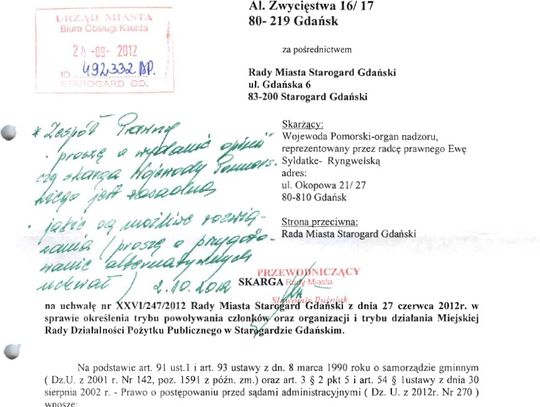 Al. Zwycięstwa 16/ 17
80- 219 Gdańsk
URZĄD MIASTA
Biuro Obsługi Klienta
2012
ID 492332
STAROGARD GD.
za pośrednictwem
Rady Miasta Starogard Gdański
ul. Gdańska 6
83-200 Starogard Gdański
* Zespół Prawny
- proszę o wydanie opinii
czy skarga Wojewody Pomors-
kiego jest zasadna,
- jakie są możliwe rozwią-
zania (proszę o przygoto-
wanie alternatywnych
uchwał) 2.10.2012
Skarżący:
Wojewoda Pomorski-organ nadzoru,
reprezentowany przez radcę prawnego Ewę
Syldatke- Ryngwelską
adres:
ul. Okopowa 21/ 27
80-810 Gdańsk
Strona przeciwna:
Rada Miasta Starogard Gdański
PRZEWODNICZĄCY
Rady Miasta
SKARGA
na uchwałę nr XXVI/247/2012 Rady Miasta Starogard Gdański z dnia 27 czerwca 2012r. w
sprawie określenia trybu powoływania członków oraz organizacji i trybu działania Miejskiej
Rady Działalności Pożytku Publicznego w Starogardzie Gdańskim.
Na podstawie art. 91 ust.1 i art. 93 ustawy z dn. 8 marca 1990 roku o samorządzie gminnym
( Dz.U. z 2001 r. Nr 142, poz. 1591 z późn. zm.) oraz art. 3 § 2 pkt 5 i art. 54 § 1ustawy z dnia 30
sierpnia 2002 r. - Prawo o postępowaniu przed sądami administracyjnymi ( Dz. U. z 2012r. Nr 270 )
wnoszę: